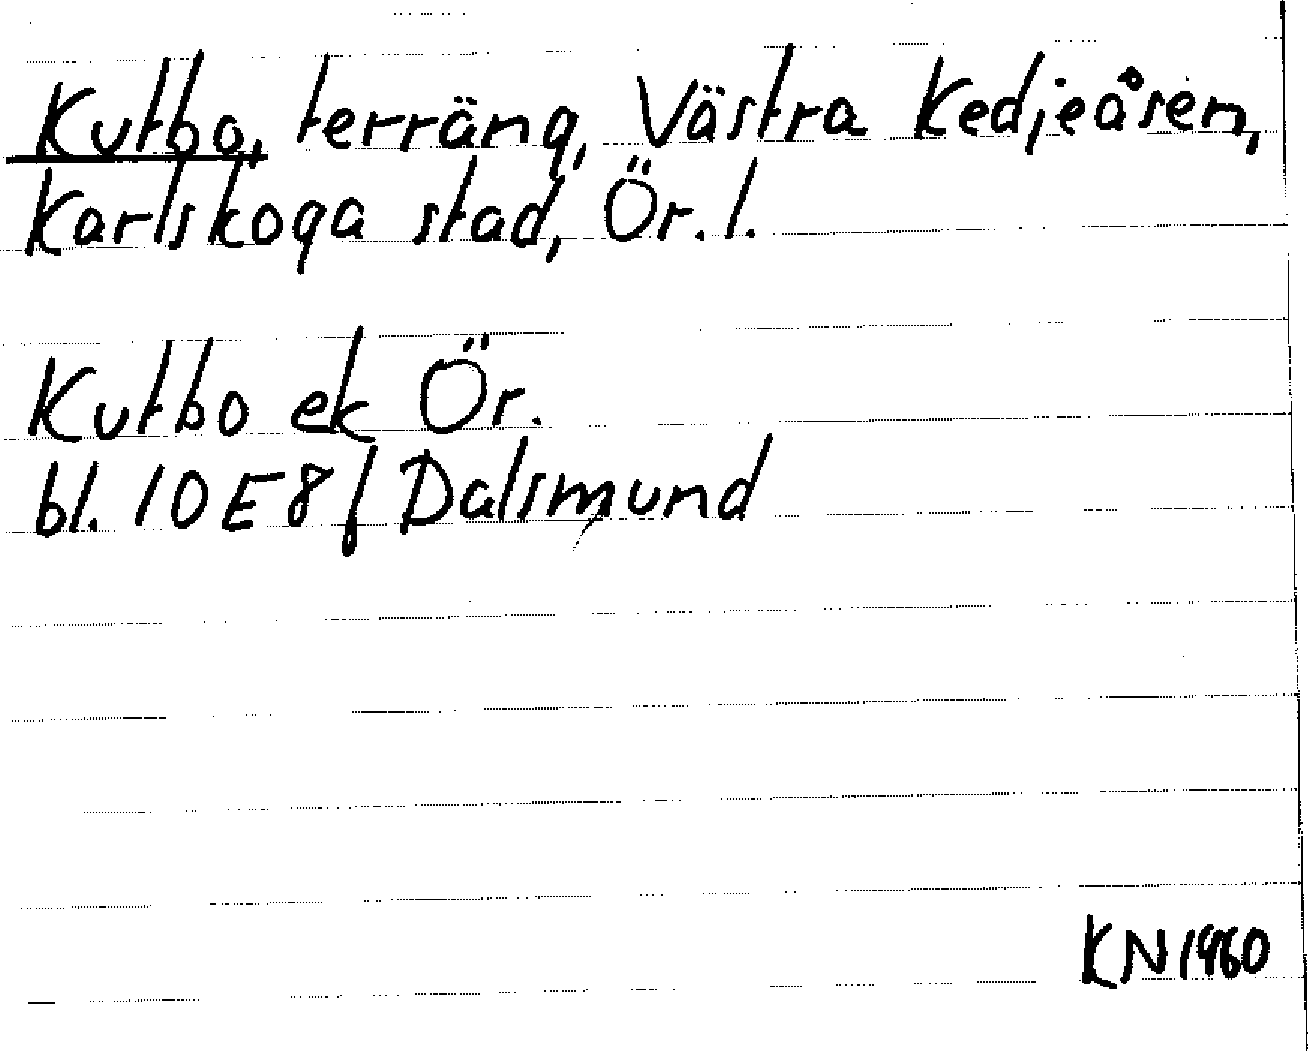 Kutbo, terräng, Västra Kedjeåsen,
Karlskoga stad, Ör. l.
Kutbo ek Ör.
bl. 10E8f Dalsmund
KN1960